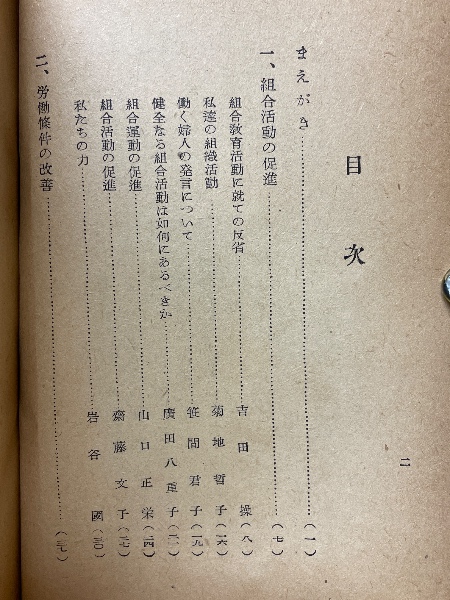 目次
まえがき……(一)
一、組合活動の促進……(七)
組合教育活動に就ての反省……吉田操(八)
私達の組織活動……菊地哲子(一六)
働く婦人の発言について……笹間君子(一九)
健全なる組合活動は如何にあるべきか……廣田八重子(二一)
組合運動の促進……山口正栄(二四)
組合活動の促進……齋藤文子(二七)
私たちの力……岩谷國(三〇)
二、労働條件の改善……(三七)
二